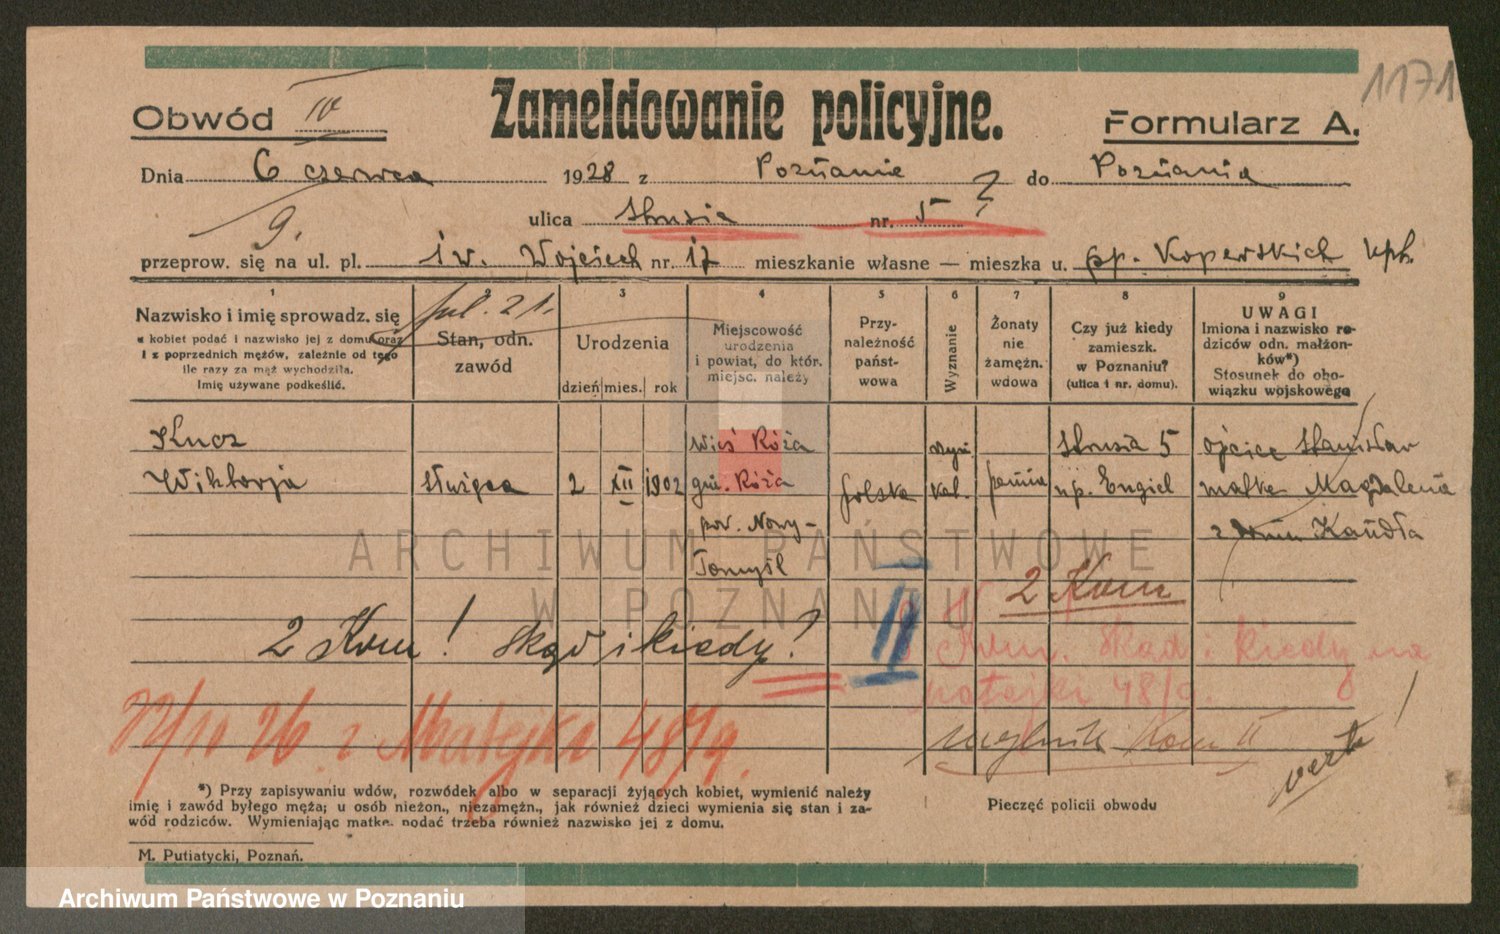 1171
Obwód IV
Zameldowanie policyjne.
Formularz A.
Dnia 6 czerwca 1928 z Poznania do Poznania
9.
ulica Strusia nr. 5 ?
przeprow. się na ul. pl. św. Wojciech nr. 17 mieszkanie własne — mieszka u. pp. Koperskich
1 2 3 4 5 6 7 8 9
Nazwisko i imię sprowadz. się
u kobiet podać i nazwisko jej z domu oraz
i z poprzednich mężów, zależnie od tego
ile razy za mąż wychodziła.
Imię używane podkeślić.
Stan, odn.
zawód
Urodzenia
dzień mies. rok
Miejscowość
urodzenia
i powiat, do któr.
miejsc. należy
Przy-
należność
państ-
wowa
Wyznanie
Żonaty
nie
zamężn.
wdowa
Czy już kiedy
zamieszk.
w Poznaniu?
(ulica i nr. domu).
UWAGI
Imiona i nazwisko ro-
dziców odn. małżon-
ków*)
Stosunek do obo-
wiązku wojskowego
Kucz wieś Róża rzym Strusia 5 ojciec Stanisław
Wiktorja służąca 2 XII 1902 gm. Róża polska kat. panna up. Engiel matka Magdalena
pow. Nowy-
Tomyśl
2 Kom
2 Kom! Skąd i kiedy?
II
Kom. Skąd i kiedy na
Matejki 48/9.
22/11 26 z Matejki 48/9.
Kom II
verte!
*) Przy zapisywaniu wdów, rozwódek albo w separacji żyjących kobiet, wymienić należy
imię i zawód byłego męża; u osób nieżon., niezamężn., jak również dzieci wymienia się stan i za-
wód rodziców. Wymieniając matkę, podać trzeba również nazwisko jej z domu.
Pieczęć policji obwodu
M. Putiatycki, Poznań.
ARCHIWUM PAŃSTWOWE
W POZNANIU
Archiwum Państwowe w Poznaniu